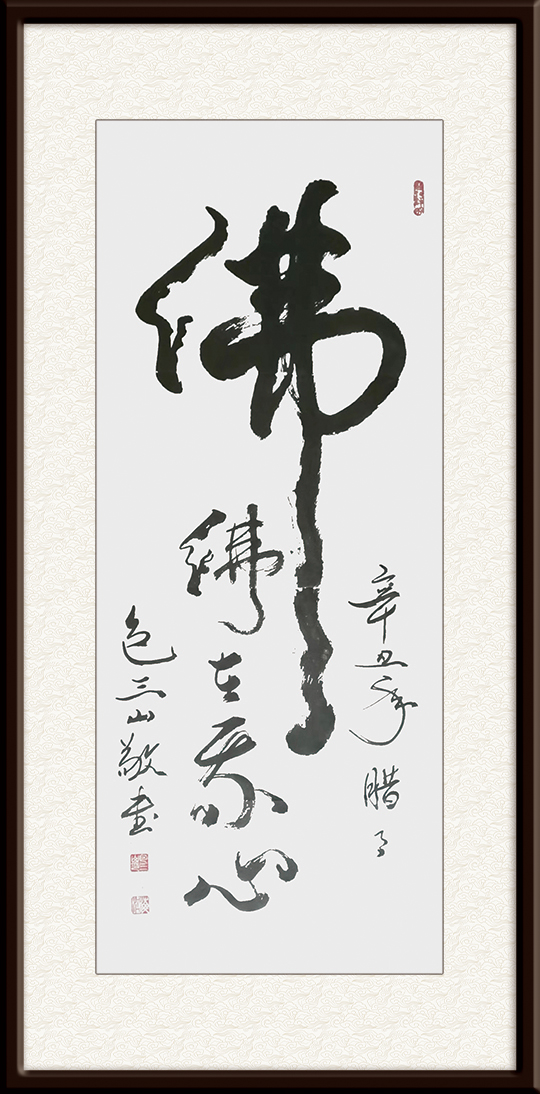 佛
辛丑年 腊月
佛在心
色三山敬書